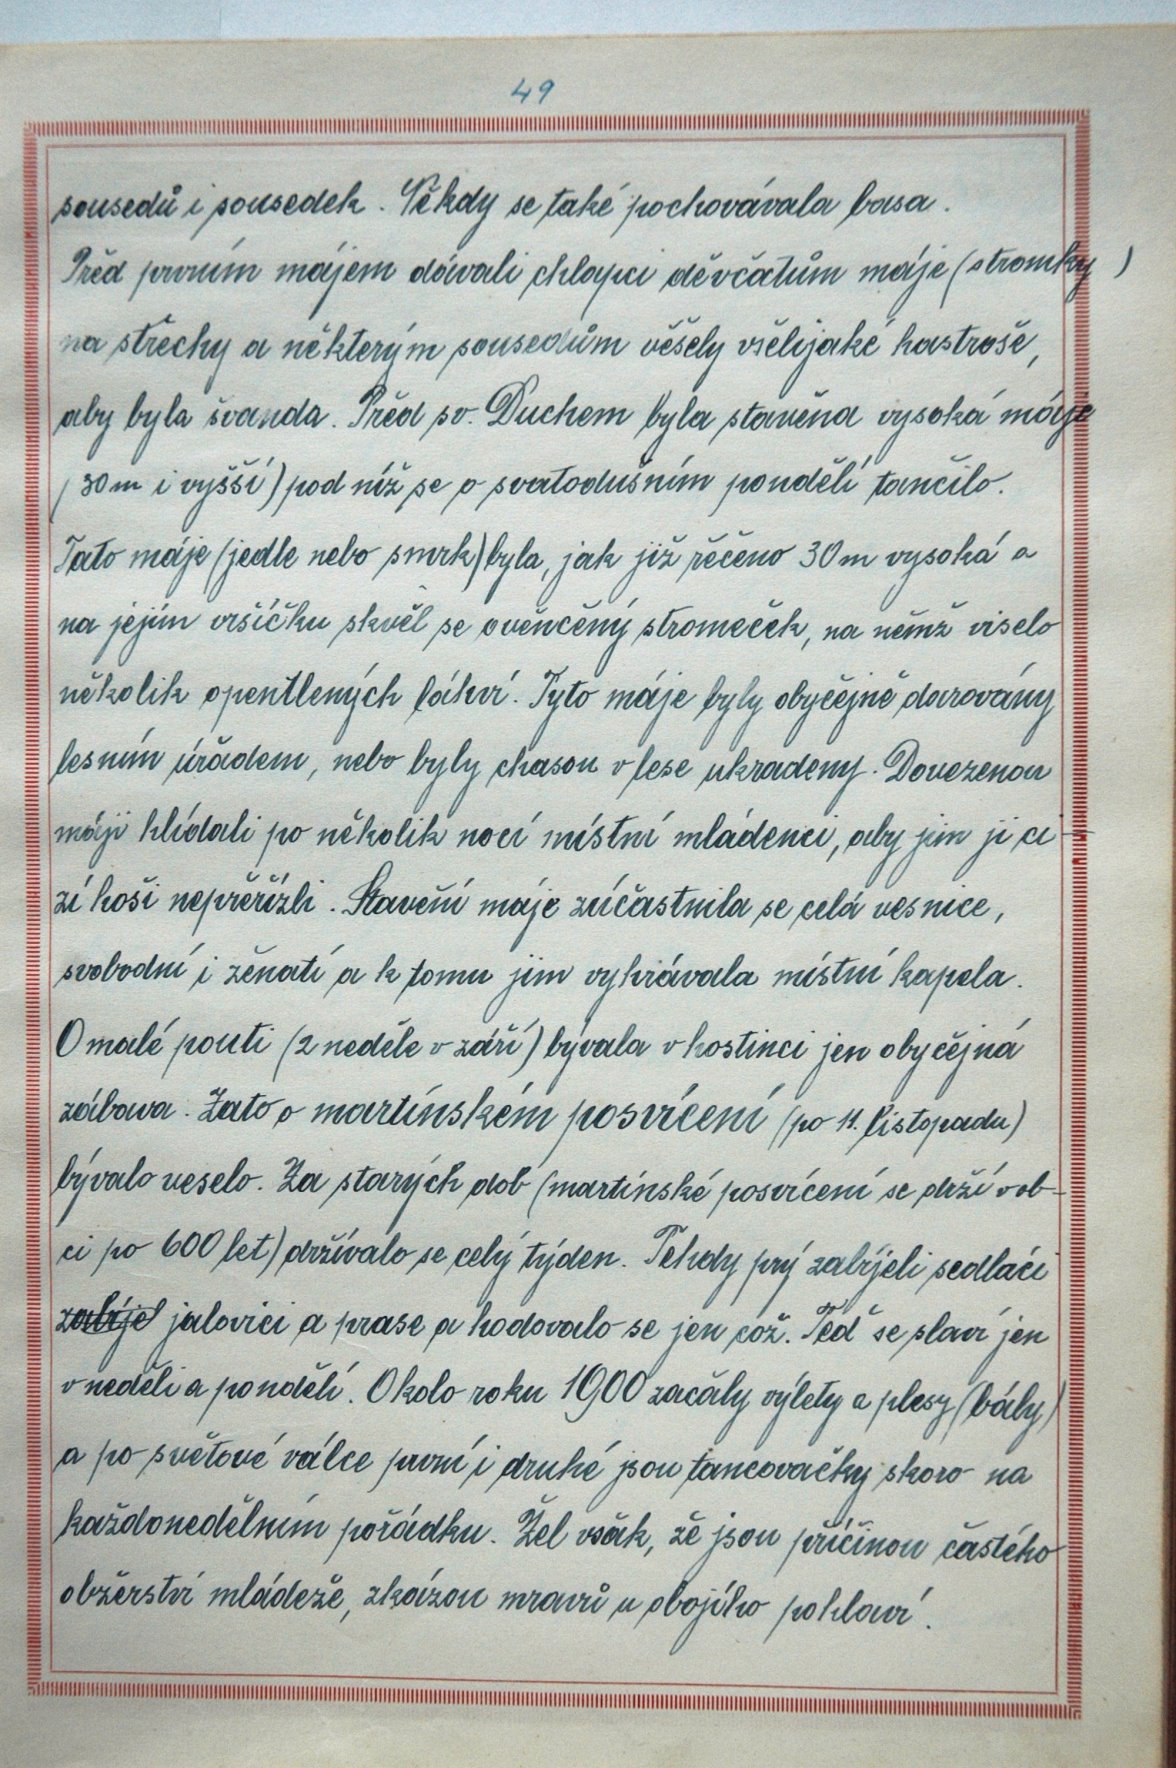 49
sousedů i sousedek. Někdy se také pochovávala basa.
Před prvním májem dávali chlapci děvčatům máje (stromky)
na střechy a některým sousedům věšely všelijaké hastroše,
aby byla švanda. Před sv. Duchem byla stavěna vysoká máje
(30 m i vyšší) pod níž se o svatodušním pondělí tančilo.
Tato máje (jedle nebo smrk) byla, jak již řečeno 30 m vysoká a
na jejím vršíčku skvěl se ověnčený stromeček, na němž viselo
několik opentlených láhví. Tyto máje byly obyčejně darovány
lesním úřadem, nebo byly chasou v lese ukradeny. Dovezenou
máji hlídali po několik nocí místní mládenci, aby jim ji ci-
zí hoši nepřeřízli. Stavění máje zúčastnila se celá vesnice,
svobodní i ženatí a k tomu jim vyhrávala místní kapela.
O malé pouti (2 neděle v září) bývala v hostinci jen obyčejná
zábava. Zato o martinském posvícení (po 11. listopadu)
bývalo veselo. Za starých dob (martinské posvícení se drží v ob-
ci po 600 let) držívalo se celý týden. Tehdy prý zabíjeli sedláci
zabíjel jalovici a prase a hodovalo se jen což. Teď se slaví jen
v neděli a pondělí. Okolo roku 1900 začaly výlety a plesy (bály)
a po světové válce první i druhé jsou tancovačky skoro na
každonedělním pořádku. Žel však, že jsou příčinou častého
obžerství mládeže, zkázou mravů u obojího pohlaví.